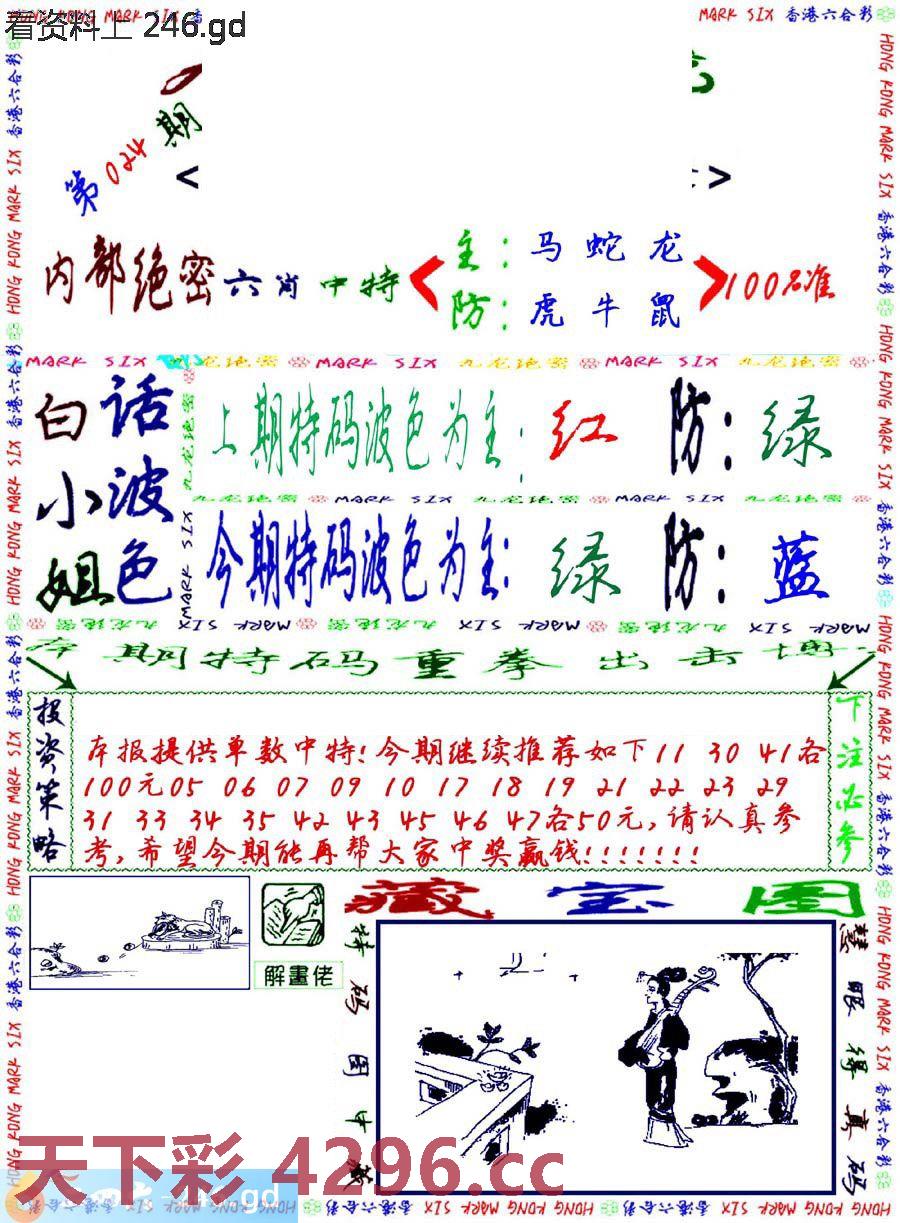 看资料上 246.gd
MARK SIX 香港六合彩
第024期
< >
内部绝密六肖中特
主：马 蛇 龙
防：虎 牛 鼠
100%准
MARK SIX 九龙绝密 MARK SIX 九龙绝密 MARK SIX 九龙绝密
白小姐
话波色
上期特码波色为主：红 防：绿
九龙绝密 MARK SIX 九龙绝密 MARK SIX 九龙绝密
今期特码波色为主：绿 防：蓝
MARK SIX 九龙绝密 MARK SIX 九龙绝密 MARK SIX 九龙绝密
期特码重拳出击
投资策略
本报提供单数中特!今期继续推荐如下11 30 41各
100元05 06 07 09 10 17 18 19 21 22 23 29
31 33 34 35 42 43 45 46 47各50元,请认真参
考,希望今期能再帮大家中奖赢钱!!!!!!!
下注必参
解畫佬
藏宝图
特码图中
慧眼得真码
天下彩 4296.cc
HONG KONG MARK SIX 香港六合彩